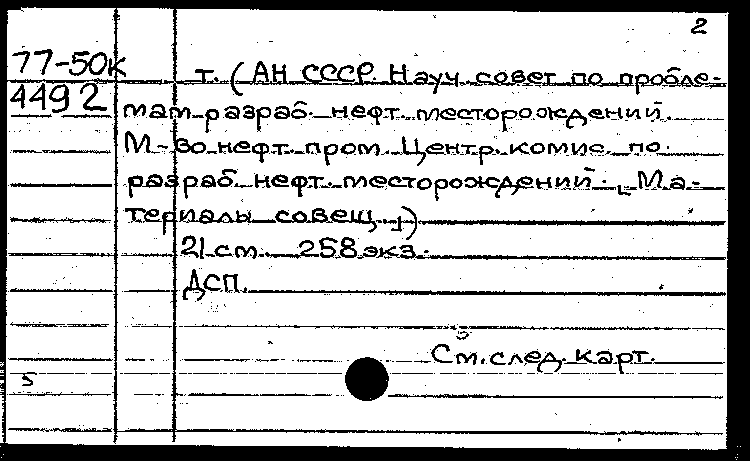 2
77-50к
4492
т. (АН СССР. Науч. совет по пробле-
мам разраб. нефт. месторождений.
М-во нефт. пром. Центр. комис. по
разраб. нефт. месторождений. [Ма-
териалы совещ.])
21 см. 258 экз.
ДСП.
См. след. карт.
5